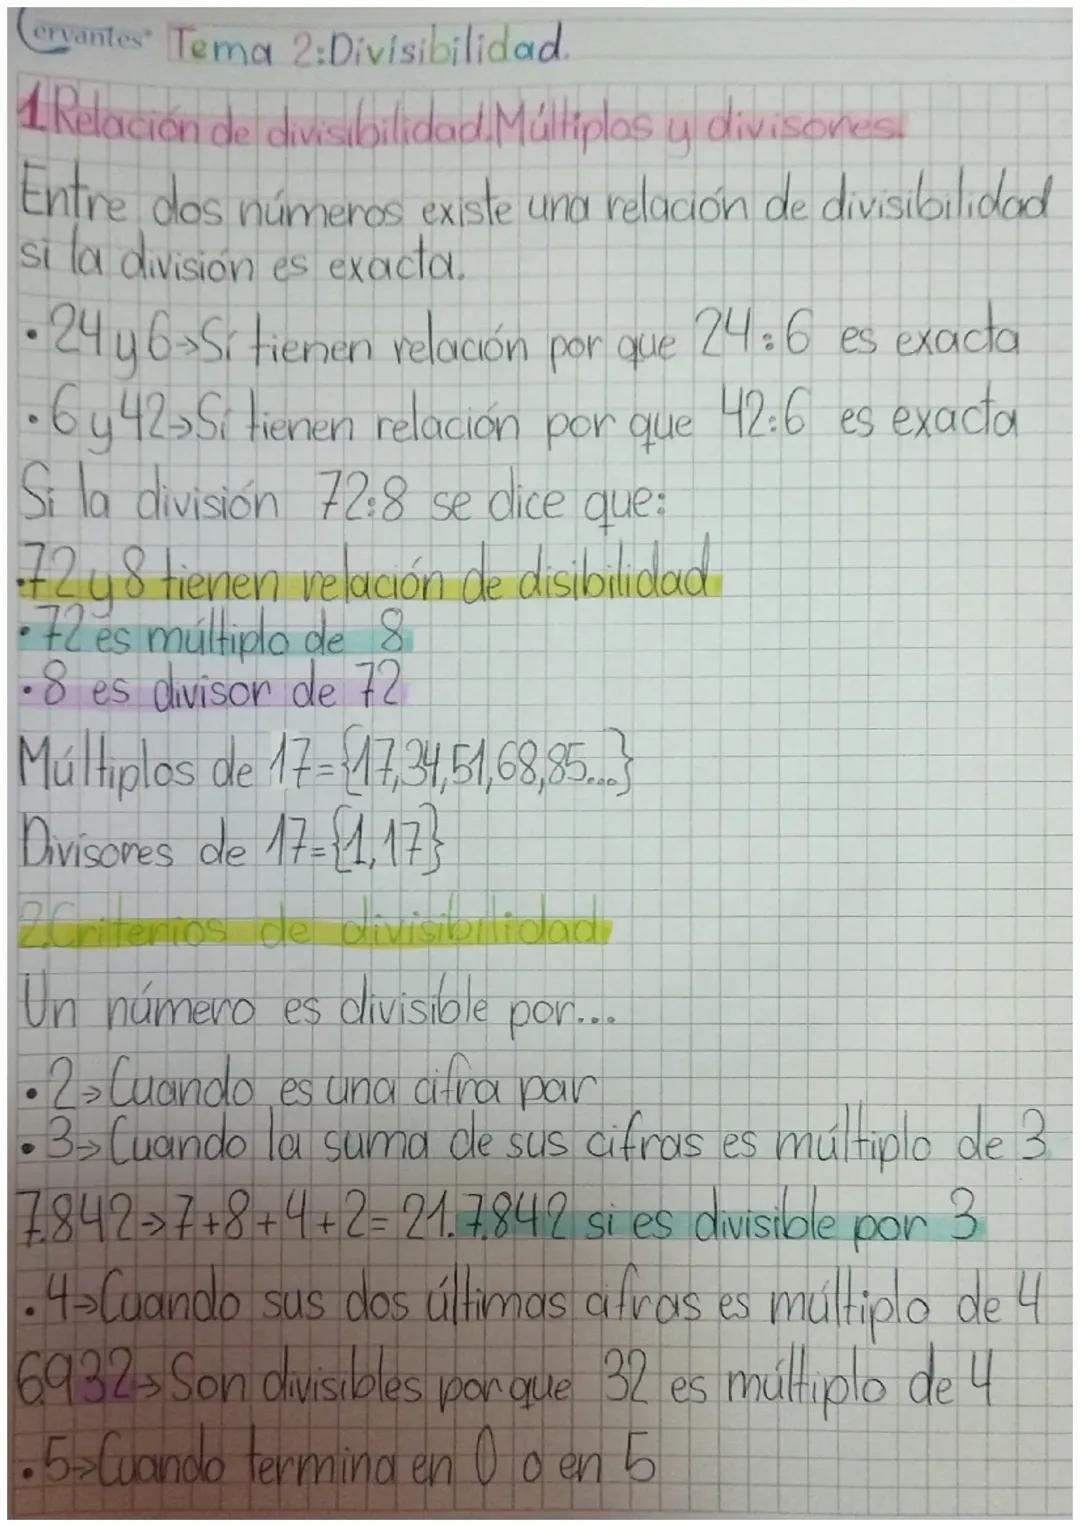 Cervantes Tema 2:Divisibilidad.
1.Relación de divisibilidad.Múltiplos y divisores.
Entre dos números existe una relación de divisibilidad
si la división es exacta.
·24y6→Sí tienen relación por que 24:6 es exacta
·6y42→Sí tienen relación por que 42:6 es exacta
Si la división 72:8 se dice que:
·72y8 tienen relación de disibilidad
·72 es múltiplo de 8
·8 es divisor de 72
Múltiplos de 17={17,34,51,68,85...}
Divisores de 17={1,17}
2.Criterios de divisibilidad.
Un número es divisible por...
·2→Cuando es una cifra par
·3→Cuando la suma de sus cifras es múltiplo de 3
7.842→7+8+4+2=21.7.842 si es divisible por 3
·4→Cuando sus dos últimas cifras es múltiplo de 4
6.932→Son divisibles porque 32 es múltiplo de 4
·5→Cuando termina en 0 o en 5